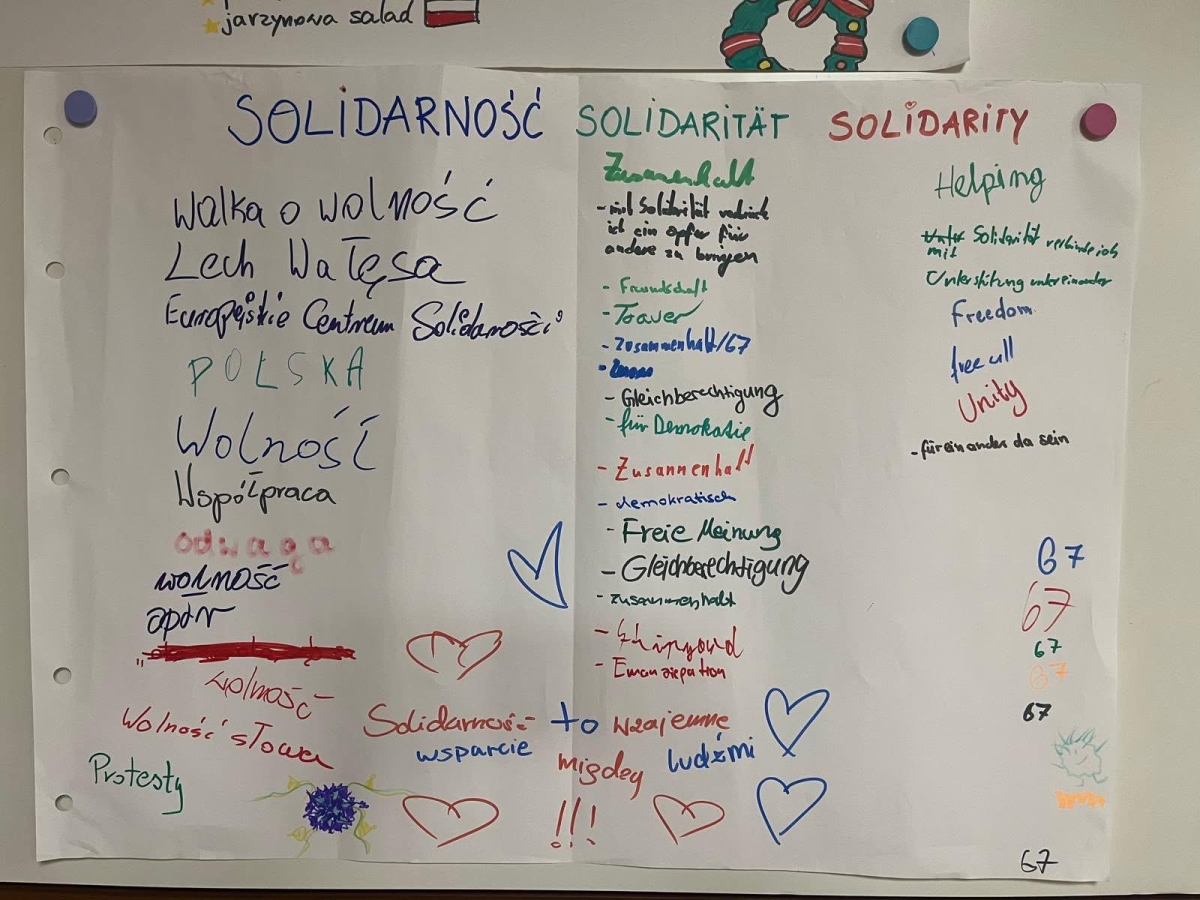 jarzynowa salad
SOLIDARNOŚĆ SOLIDARITÄT SOLIDARITY
Walka o wolność
Lech Wałęsa
Europejskie Centrum Solidarności
POLSKA
Wolność
Współpraca
odwaga
wolność
opór
wolność
Wolność słowa
Protesty
Zusammenhalt
- mit Solidarität
ich ein opfer für
andere zu bringen
- Freundschaft
- Toaver
- Zusammenhalt/67
- Gleichberechtigung
- für Demokratie
- Zusammenhalt
- demokratisch
- Freie Meinung
- Gleichberechtigung
- zusammenhalt
- Emanziepation
Helping
Solidarität verbinde ich
mit
Unterstützung untereinander
Freedom
free all
Unity
- füreinander da sein
67
67
67
67
67
Solidarność to wzajemne
wsparcie między ludźmi
!!!
67